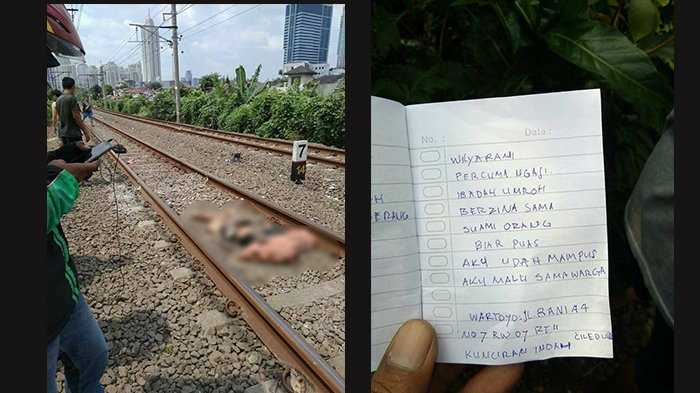 7
No. :
Date :
WILYARANI
PERCUMA NGAJI.
IBADAH UMROH
BERZINA SAMA
SUAMI ORANG
BIAR PUAS
AKU UDAH MAMPUS
AKU MALU SAMA WARGA
WARTOYO. JL RANI A4
NO 7 RW 07 RT 11
CILEDUG
KUNCIRAN INDAH